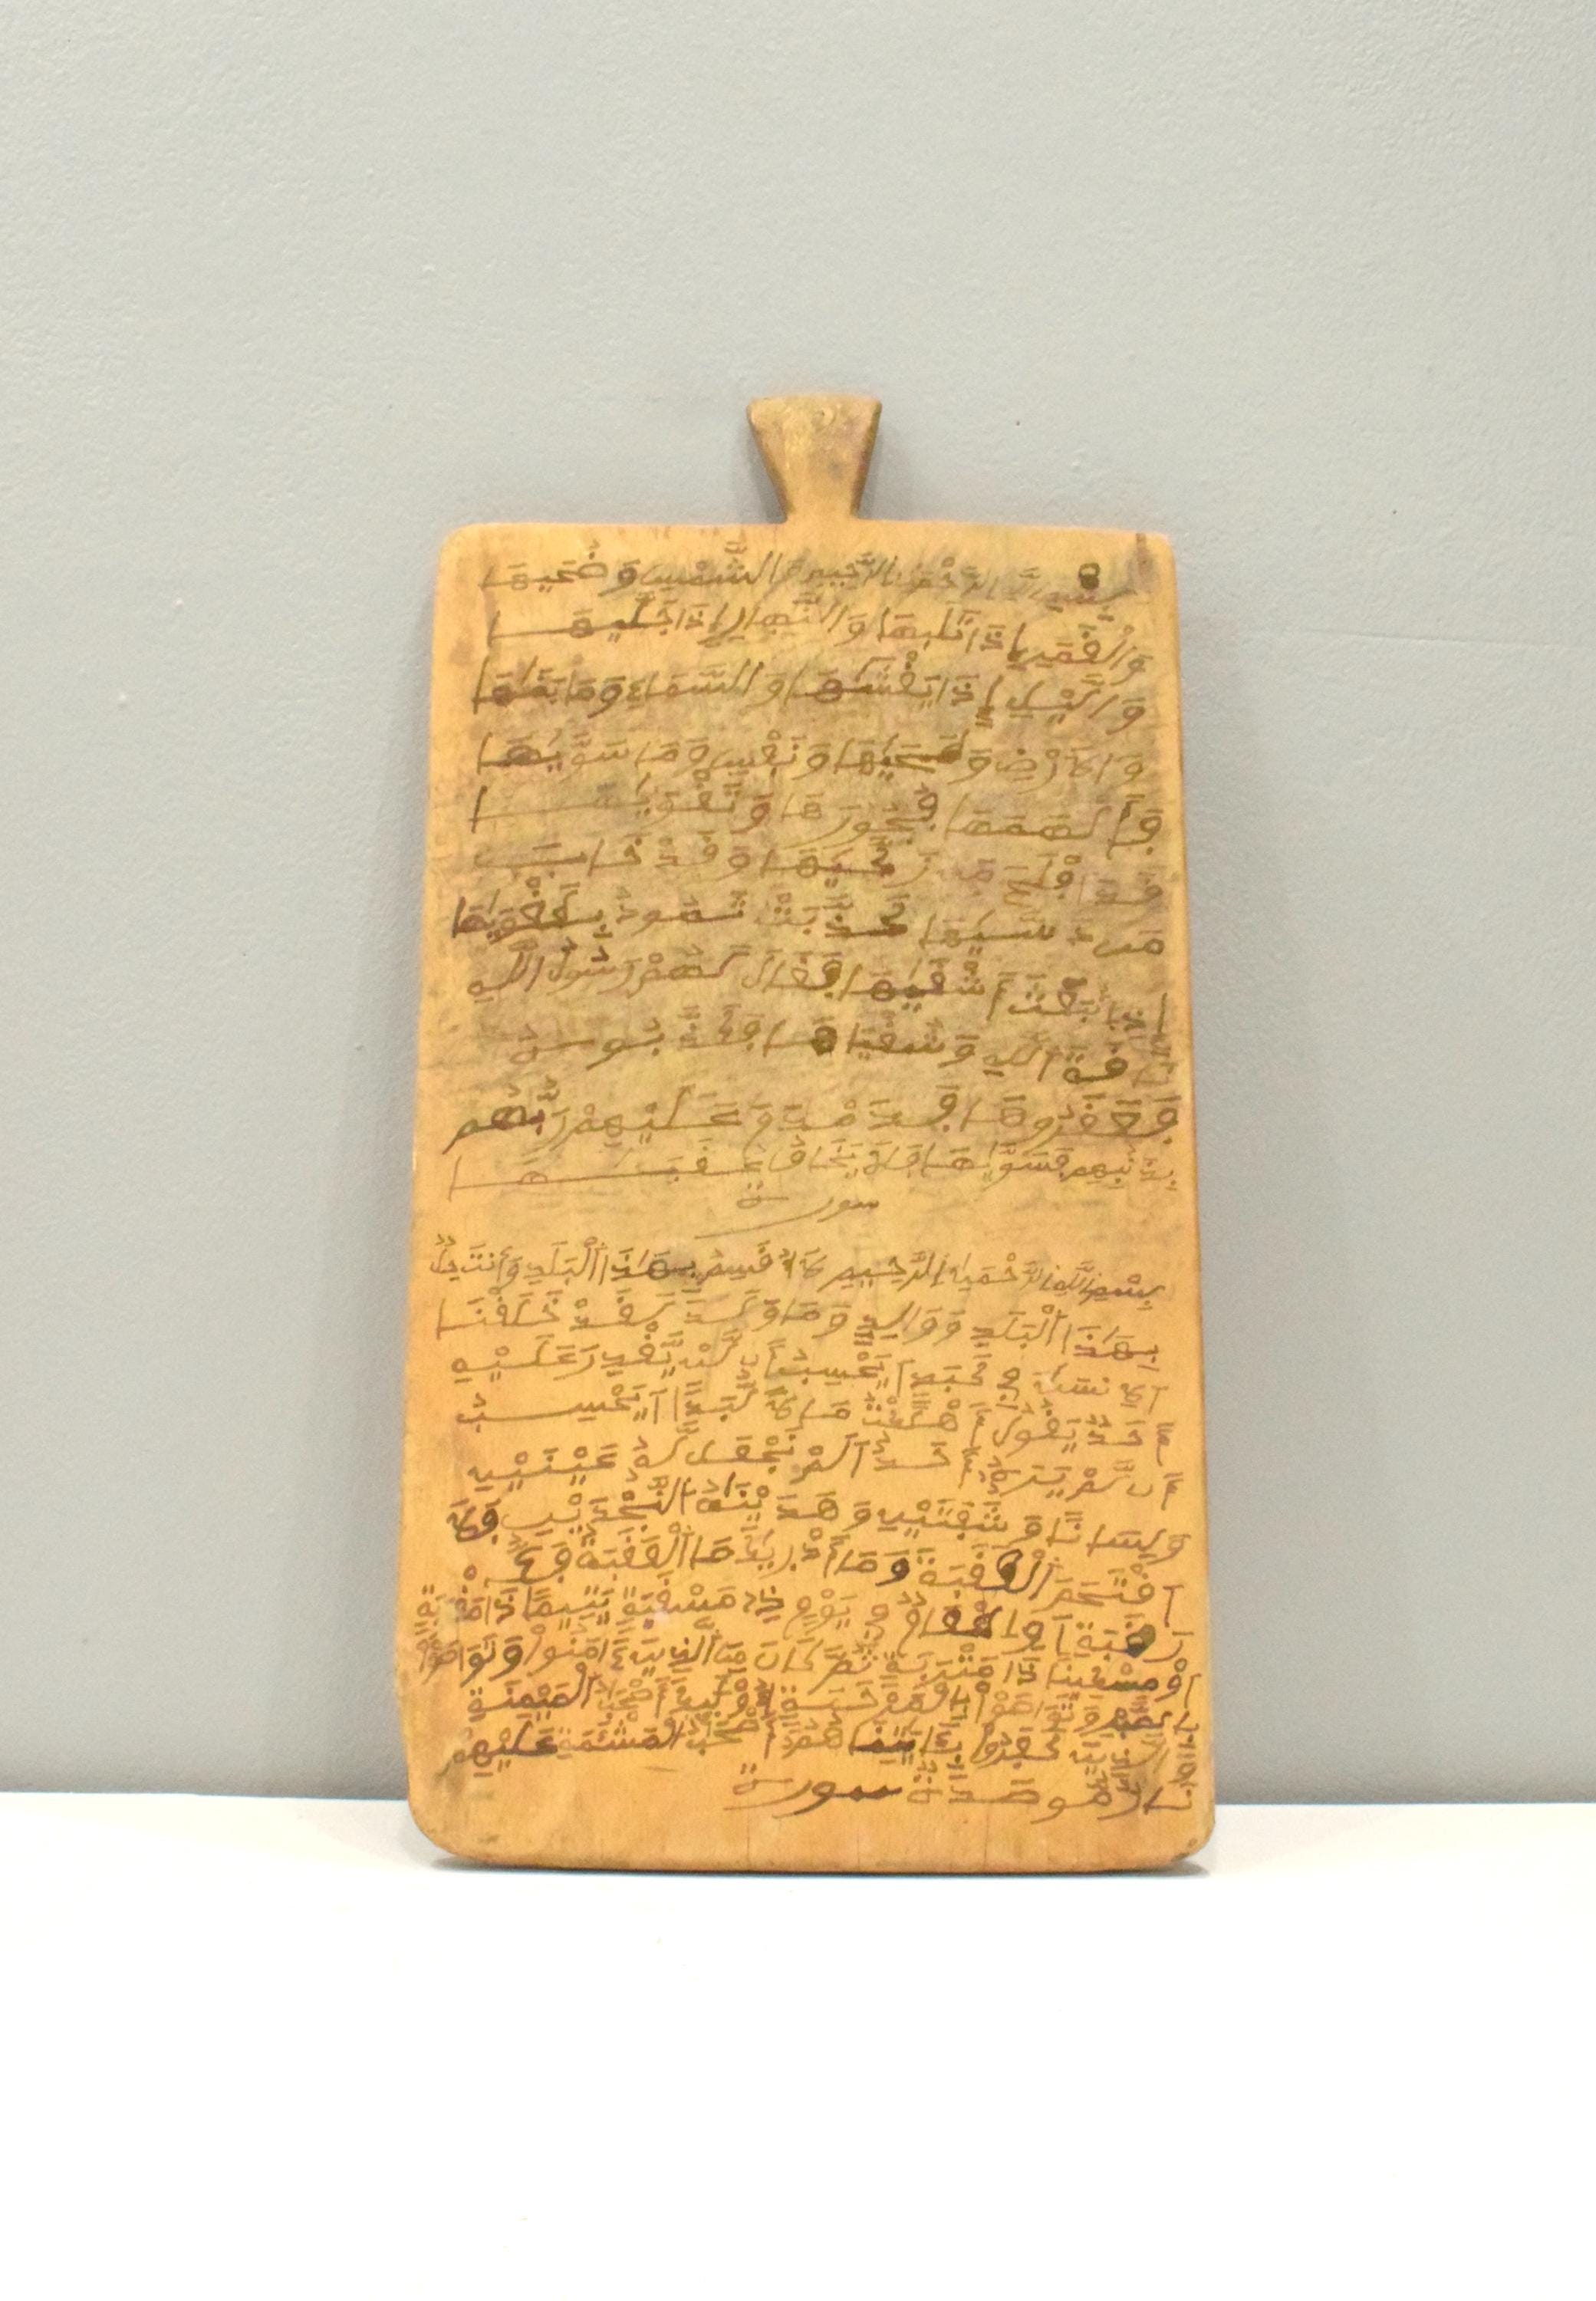 بسم الله الرحمن الرحيم والشمس وضحيها
والقمر إذا تليها والنهار إذا جليها
واليل إذا يغشيها والسماء وما بنيها
والارض و طحيها ونفس وما سويها
فألهمها فجورها وتقويها
قد افلح من زكيها وقد خاب
من دسيها كذبت ثمود بطغويها
إذ انبعث أشقيها فقال لهم رسول الله
ناقة الله وسقياها
فعقروها عليهم ربهم
بذنبهم فسويها فلا يخاف عقبها
سورة
بِسْمِ اللَّهِ الرَّحْمَنِ الرَّحِيمِ لَا أُقْسِمُ بِهَذَا الْبَلَدِ وَأَنتَ حِلٌّ
بِهَذَا الْبَلَدِ وَوَالِدٍ وَمَا وَلَدَ لَقَدْ خَلَقْنَا
الانسان في كبد ايحسب أن لن يقدر عليه
أحد يقول أهلكت مالا لبدا ايحسب
أن لم يره أحد الم نجعل له عينين
ولسانا وشفتين وهدينه النجدين فلا
اقتحم العقبة وما أدريك ما العقبة فك
رقبة او اطعام في يوم ذي مسغبة يتيما ذا مقربة
او مسكينا ذا متربة ثم كان من الذين ءامنوا وتواصوا
بالصبر وتواصوا بالمرحمة أولئك أصحب الميمنة
والذين كفروا بئايتنا هم أصحب المشئمة عليهم
نار موصدة سورة